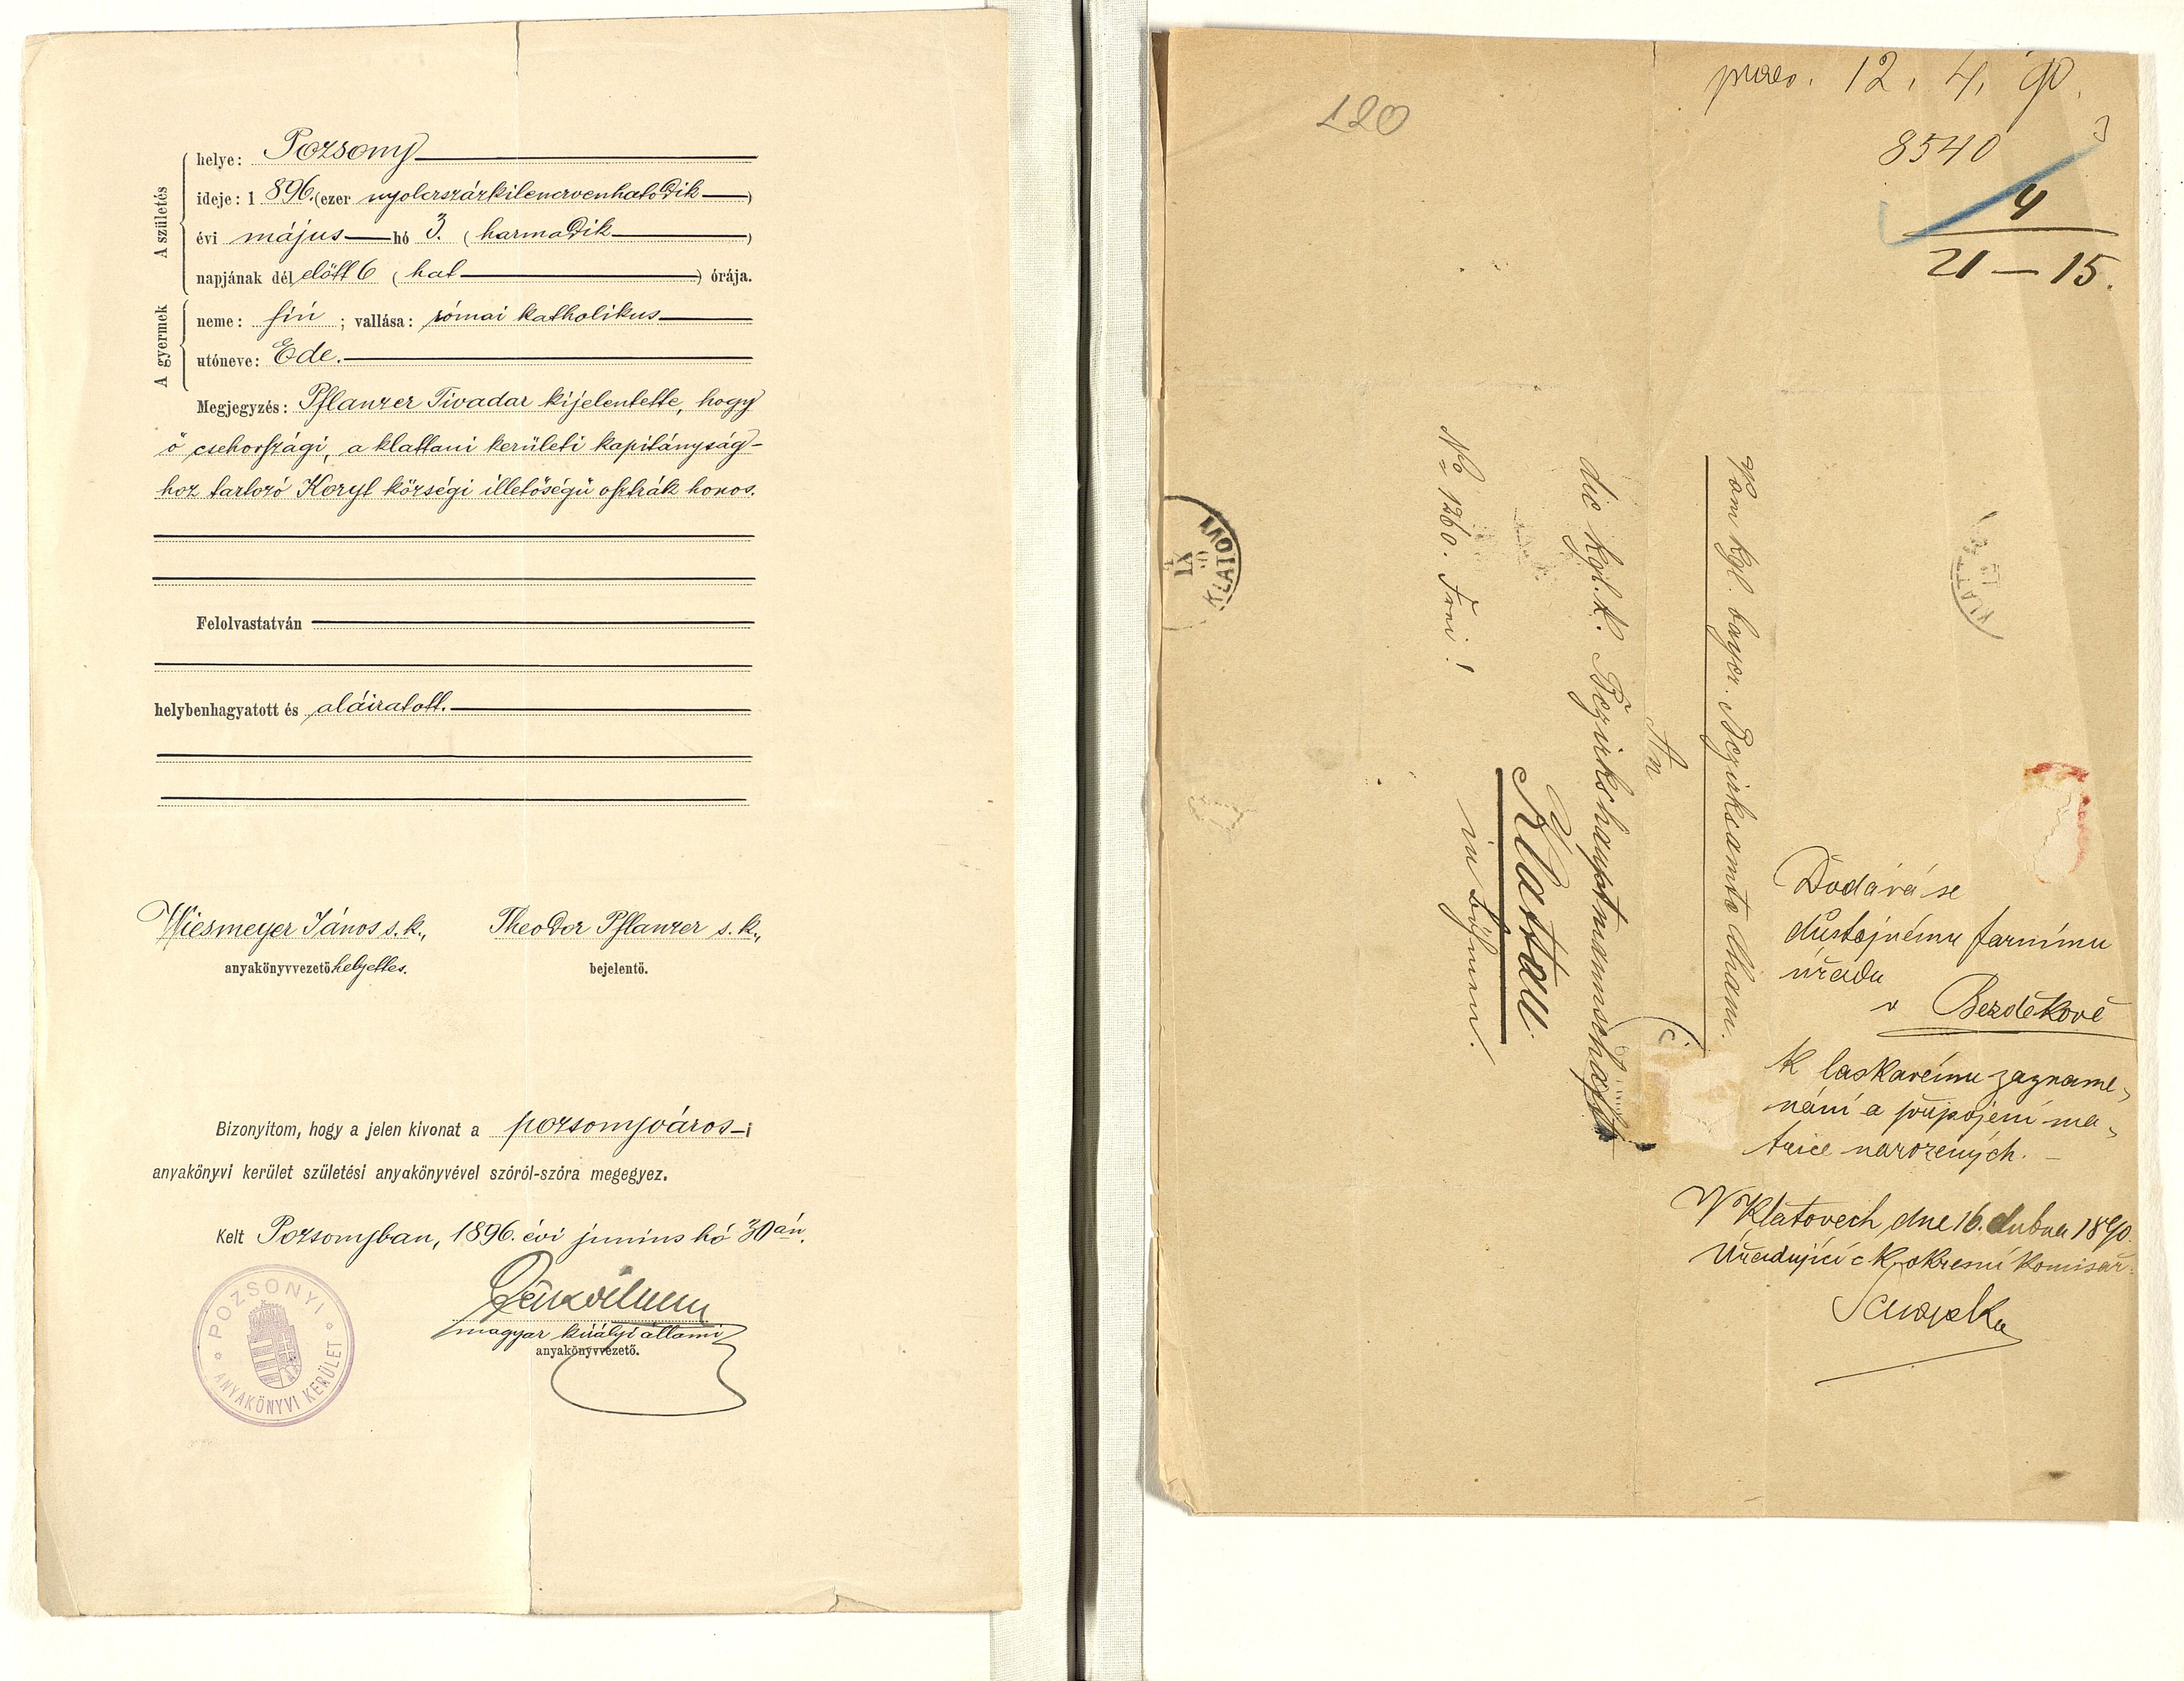 A születés
helye: Pozsony
ideje: 1896. (ezer nyolczszázkilenczvenhatodik)
évi május hó 3. (harmadik)
napjának dél előtt 6 (hat) órája.
A gyermek
neme: fiú; vallása: római katholikus
utóneve: Ede.
Megjegyzés: Pflanzer Tivadar kijelentette, hogy
ő csehországi, a klattaui kerületi kapitányság-
hoz tartozó Koryt községi illetőségű osztrák honos.
Felolvastatván
helybenhagyatott és aláiratott.
Wiesmeyer János s. k., Theodor Pflanzer s. k.,
anyakönyvvezető helyettes. bejelentő.
Bizonyitom, hogy a jelen kivonat a pozsonyváros-i
anyakönyvi kerület születési anyakönyvével szóról-szóra megegyez.
Kelt Pozsonyban, 1896. évi junius hó 30án.
magyar királyi állami
anyakönyvvezető.
POZSONYI ANYAKÖNYVI KERÜLET
120
praes. 12. 4. 90.
8540
4
21 — 15.
Vom kgl. bayer. Bezirksamte Cham.
An
die kgl. k. Bezirkshauptmannschaft
Klattau.
in Böhmen.
No 1260. Frei!
KLATOVY
Dodává se
důstojnému farnímu
úřadu
v Bezděkově
k laskavému zazname-
nání a připojení ma-
trice narozených. —
V Klatovech, dne 16. dubna 1890.
Úřadující c. k. okresní komisař: